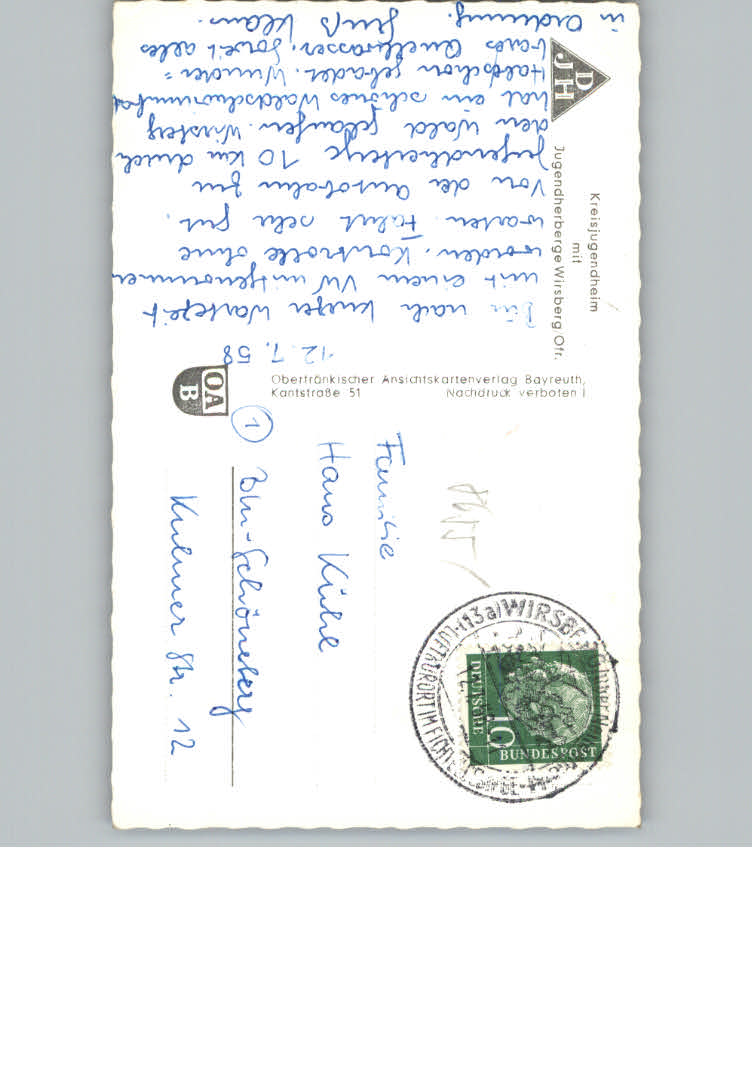 Kreisjugendheim
mit
Jugendherberge Wirsberg/Ofr.
DJH
12.7.58
Bin nach kurzer Wartezeit
mit einem VW mitgenommen
worden. Kontrolle ohne
warten. Fahrt sehr gut.
Von der Autobahn zur
Jugendherberge 10 km durch
den Wald gelaufen. Wirsberg
hat ein schönes Waldschwimmbad
Habe schon gebadet. Wunder=
bares Quellwasser. Soweit alles
in Ordnung. Gruß Klaus.
Oberfränkischer Ansichtskartenverlag Bayreuth,
Kantstraße 51 Nachdruck verboten!
OAB
Familie
Hans
① Bln-Schöneberg
Kulmer Str. 12
(13a) WIRSBERG
LUFTKURORT IM
DEUTSCHE
10
BUNDESPOST